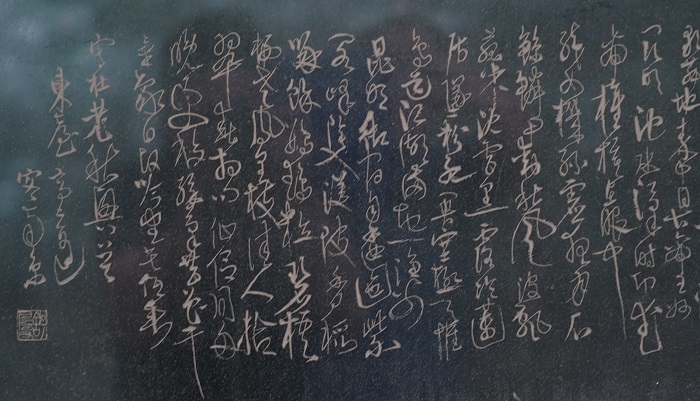 歌舞地秦中自古帝王州
昆明池水漢時功武
帝旌旗在眼中
織女機絲虛夜月石
鯨鱗甲動秋風波飄
菰米沈雲黑露冷蓮
房墜粉紅關塞極天惟
鳥道江湖滿地一漁翁
昆吾御宿自逶迤紫
閣峰陰入渼陂香稻
啄餘鸚鵡粒碧梧
棲老鳳凰枝佳人拾
翠春相問仙侶同舟
晚更移彩筆昔干
氣象白頭吟望苦低垂
寫杜老秋興
東